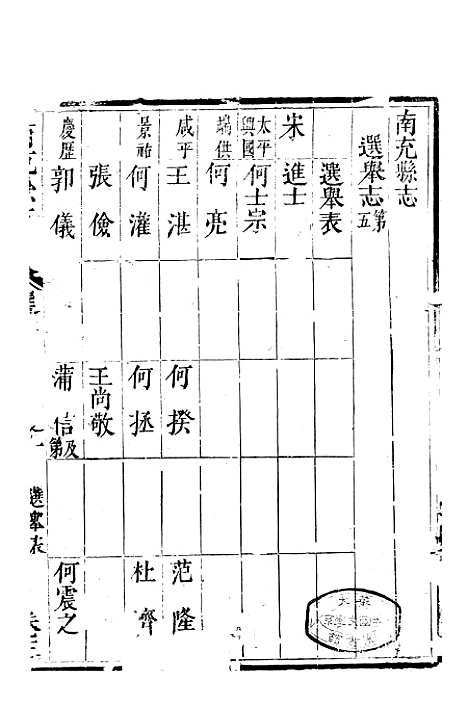 南充縣志
選舉志第五
選舉表
宋 進士
太平興國 何士宗
端供 何亮
咸平 王湛 何揆 范隆
景祐 何灌 何拯 杜齊
張儉 王尚敬
慶歷 郭儀 蒲信及第 何震之
選舉表